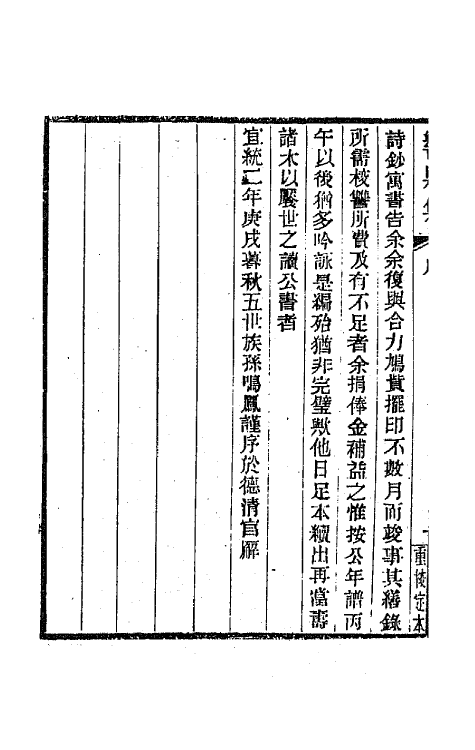 序
重校定本
詩鈔寓書告余余復與合力鳩貲擺印不數月而竣事其繕錄
所需校讐所費及有不足者余捐俸金補益之惟按公年譜丙
午以後猶多吟詠是編殆猶非完璧歟他日足本續出再當壽
諸木以饜世之讀公書者
宣統二年庚戌暮秋五世族孫鳴鳳謹序於德清官廨